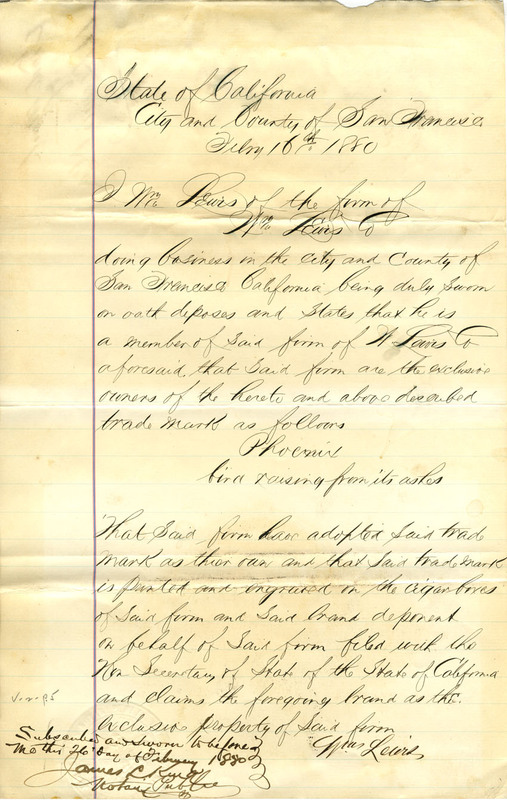 State of California
City and County of San Francisco
Febry 16th 1880
I Wm Lewis of the firm of
Wm Lewis Co
doing business in the City and County of
San Francisco California being duly sworn
on oath deposes and states that he is
a member of said firm of W Lewis Co
aforesaid, that said firm are the exclusive
owners of the hereto and above described
trade mark as follows
Phoenix
bird raising from its ashes
That said firm have adopted said trade
mark as thier own and that said trade mark
is printed and engraved on the cigar boxes
of said firm and said brand deponent
on behalf of said firm filed with the
Hon Secretary of State of the State of California
and claims the foregoing brand as the
exclusive property of said firm
Wm Lewis
Subscribed and sworn to before
me this 16 day of Febuary 1880
James L King
Notary Public